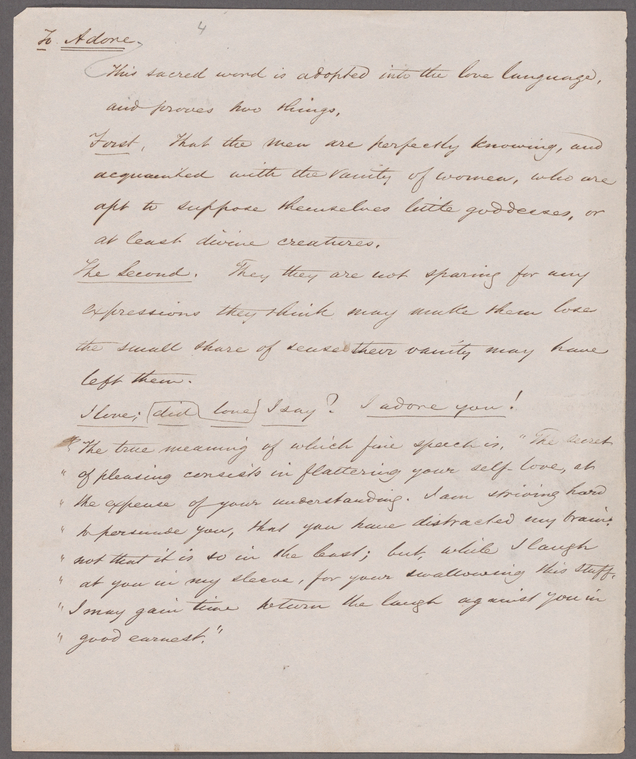 4
To Adore,
This sacred word is adopted into the love language,
and proves two things,
First, That the men are perfectly knowing, and
acquainted with the vanity of women, who are
apt to suppose themselves little goddesses, or
at least divine creatures.
The Second. They they are not sparing for any
expressions they think may make them lose
the small share of sense their vanity may have
left them.
I love; did love I say? I adore you!
"The true meaning of which fine speech is, "The secret
" of pleasing consists in flattering your self-love, at
" the expense of your understanding. I am striving hard
" to persuade you, that you have distracted my brain:
" not that it is so in the least; but, while I laugh
" at you in my sleeve, for your swallowing this stuff,
" I may gain time return the laugh against you in
" good earnest."